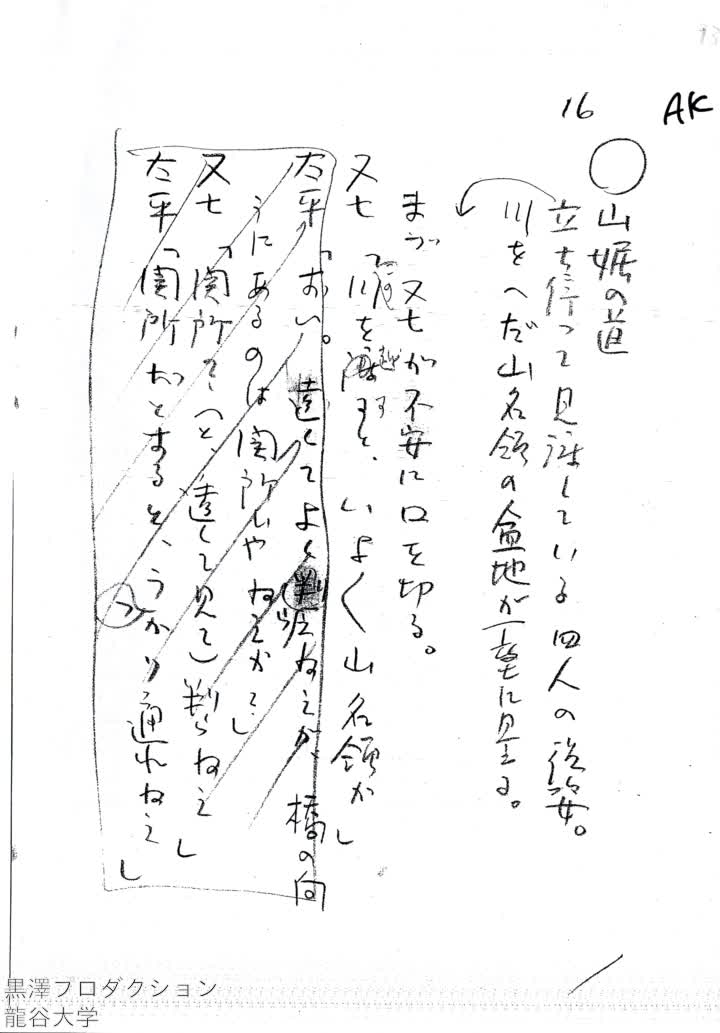 AK
16
山裾の道
立ち停って見渡している四人の後姿。
川をへだ山名領の盆地が一望に見える。
まづ又七が不安に口を切る。
又七「この川を越すと、いよく山名領か」
太平「おい。遠くてよく判らねえが、橋の向
うにあるのは関所ぢやねえかて…」
又七「関所？(と、遠くを見て)判らねえ」
太平「関所だとすると、うつかり通れねえ」
黒澤プロダクション
龍谷大学